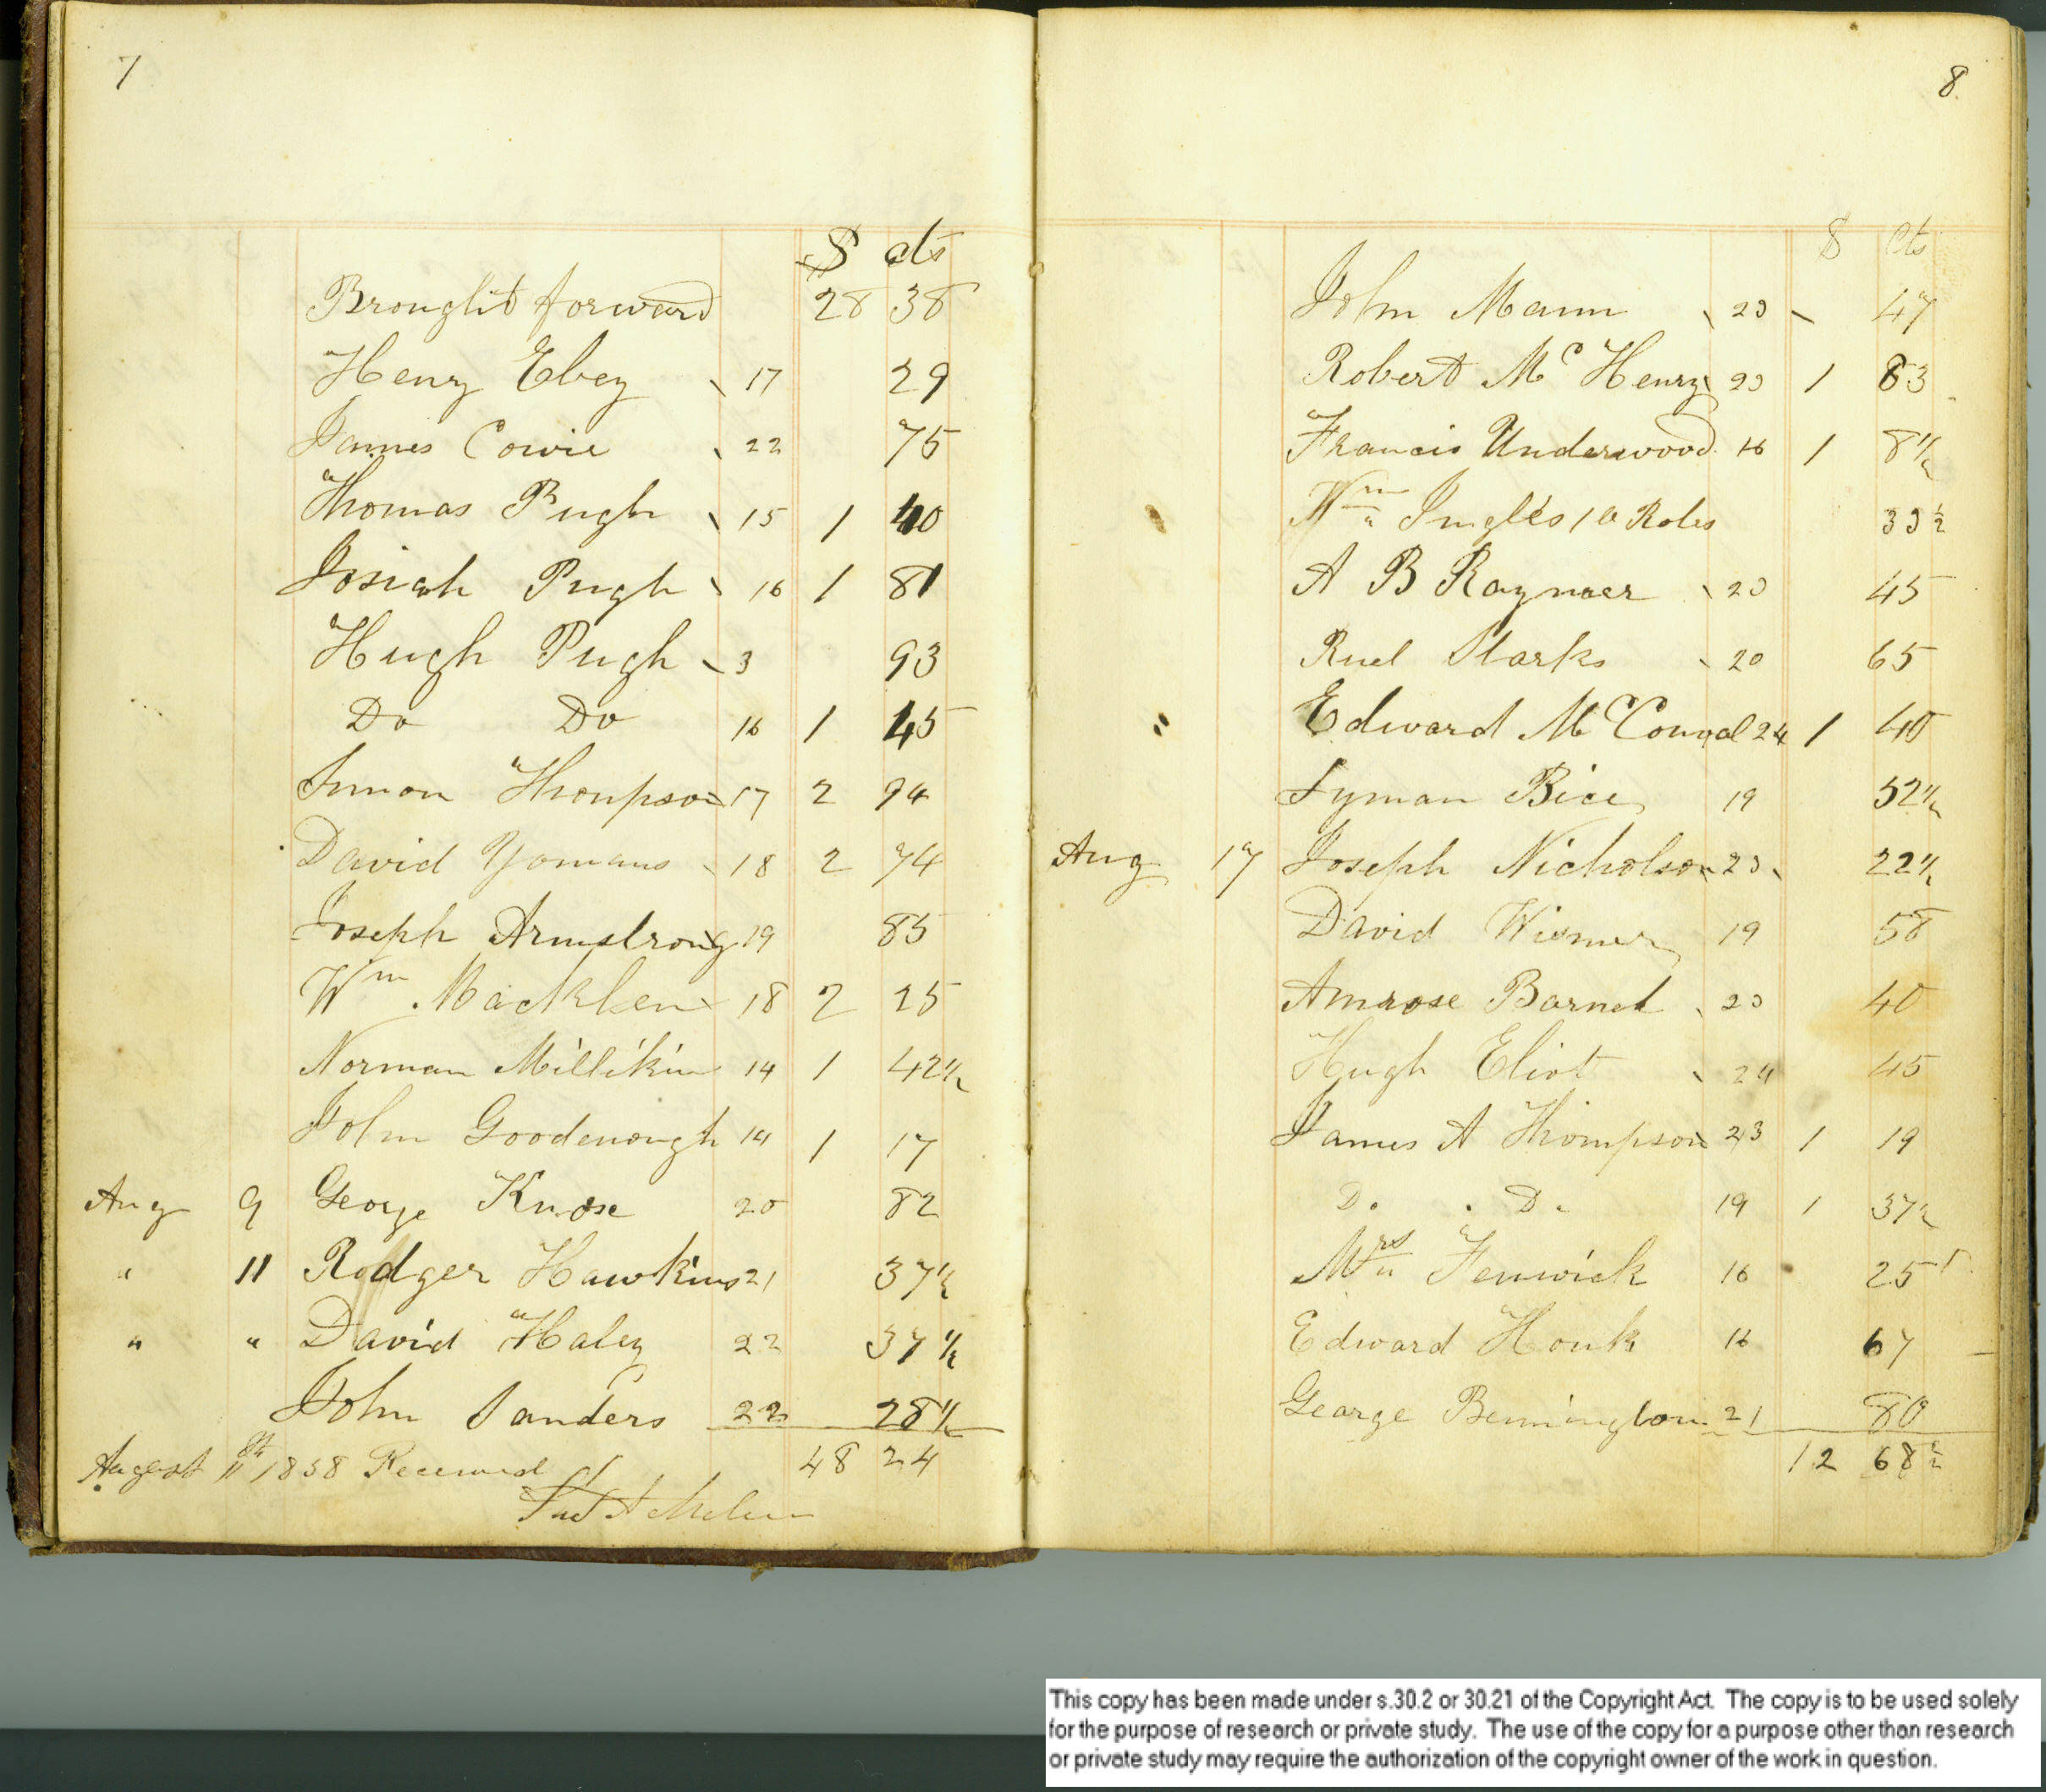 7
$ cts
Brought forward 28 38
Henry Ebey 17 29
James Cowie 22 75
Thomas Pugh 15 1 40
Josiah Pugh 16 1 81
Hugh Pugh 3 93
Do Do 16 1 45
Inmon Thompson 17 2 94
David Yomans 18 2 74
Joseph Armstrong 19 85
Wm Macklen 18 2 25
Norman Millikin 14 1 42½
John Goodenough 14 1 17
Aug 9 George Knose 20 82
" 11 Rodger Hawkins 21 37½
" " David Haley 22 37½
John Sanders 22 28½
48 24
August 11th 1858 Received
8
$ cts
John Mann 23 47
Robert Mc Henry 23 1 83
Francis Underwood 16 1 8½
Wm Ingles 10 Roles 39½
A B Raymer 23 45
Ruel Starks 20 65
" Edward McConnal 24 1 40
Lyman Bice 19 52½
Aug 17 Joseph Nicholson 23 22½
David Wismer 19 58
Amrose Barnet 23 40
Hugh Eliot 24 45
James A Thompson 23 1 19
Do Do 19 1 37½
Mrs Fenwick 16 25
Edward Houk 16 67
George Bennington 21 80
12 68½
This copy has been made under s.30.2 or 30.21 of the Copyright Act. The copy is to be used solely
for the purpose of research or private study. The use of the copy for a purpose other than research
or private study may require the authorization of the copyright owner of the work in question.